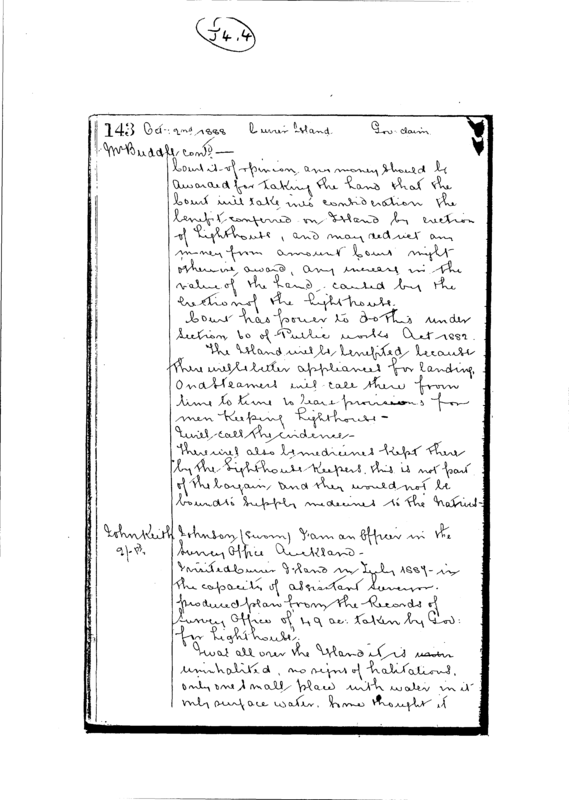 J4.4
143 Oct: 2nd 1888 Cuvier Island Gov. claim
Mr Buddle contd:—
Court is of opinion any money should be
awarded for taking the land that the
Court will take into consideration the
benefit conferred on Island by erection
of Lighthouse, and may deduct any
money from amount Court might
otherwise award, any increase in the
value of the land caused by the
erection of the Lighthouse.
Court has power to do this under
Section 60 of Public works Act 1882.
The Island will be benefited because
there will be better appliances for landing.
And Steamers will call there from
time to time to leave provisions for
men keeping Lighthouse—
I will call the evidence—
There will also be medicines kept there
by the Lighthouse Keepers, this is not part
of the bargain and they would not be
bound to supply medecines to the Natives—
John Keith Johnson (sworn) I am an Officer in the
Survey Office Auckland—
I visited Cuvier Island in July 1887— in
the capacity of assistant Surveyor.
produced plan from the Records of
Survey Office of 49 ac: taken by Gov:
for Lighthouse.
I was all over the Island it is
uninhabited, no signs of habitations.
only one small place with water in it
only surface water. Some thought it